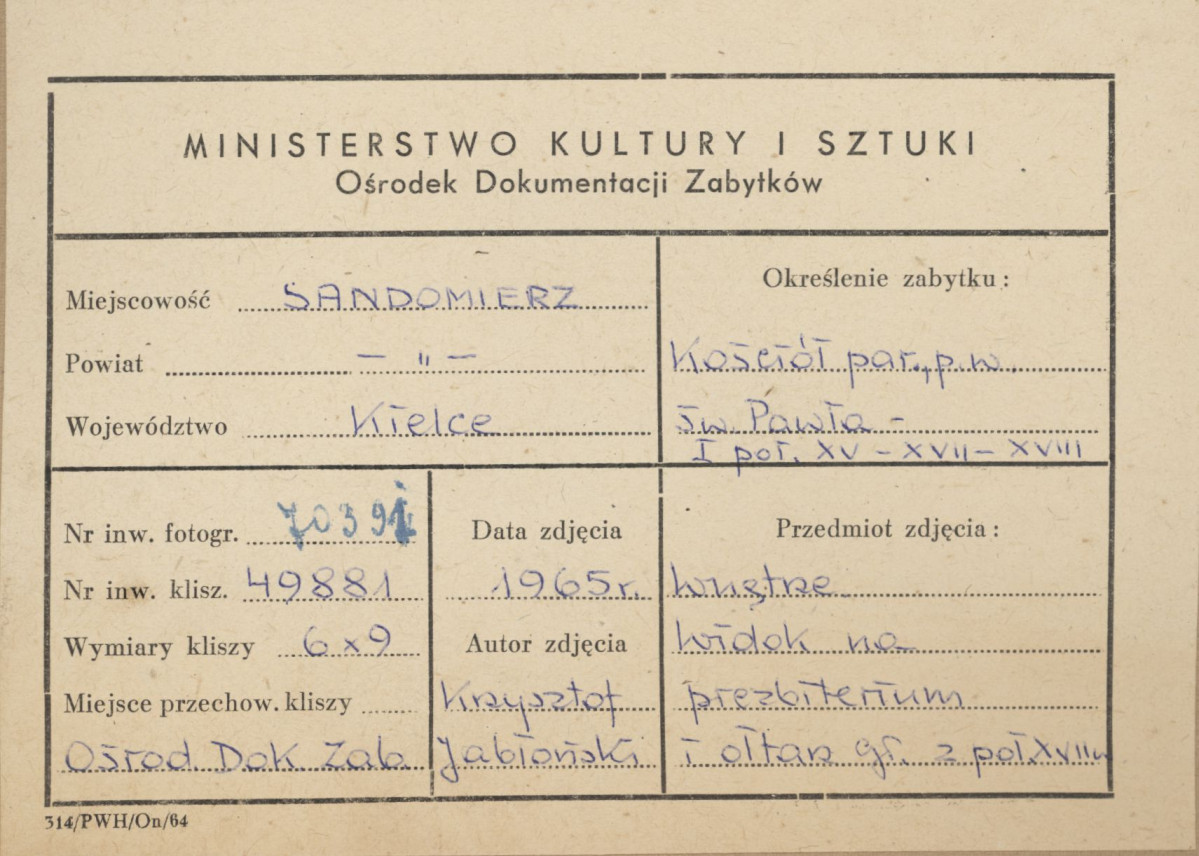 MINISTERSTWO KULTURY I SZTUKI
Ośrodek Dokumentacji Zabytków
Miejscowość SANDOMIERZ
Powiat — „ —
Województwo Kielce
Określenie zabytku:
Kościół par., p.w.
św. Pawła -
I poł. XV - XVII - XVIII
Nr inw. fotogr.
Nr inw. klisz. 49881
Wymiary kliszy 6x9
Miejsce przechow. kliszy
Ośrod. Dok Zab
Data zdjęcia
1965r.
Autor zdjęcia
Krzysztof
Jabłoński
Przedmiot zdjęcia:
Wnętrze
widok na
prezbiterium
i ołtarz gł. z poł. XVII w
314/PWH/On/64